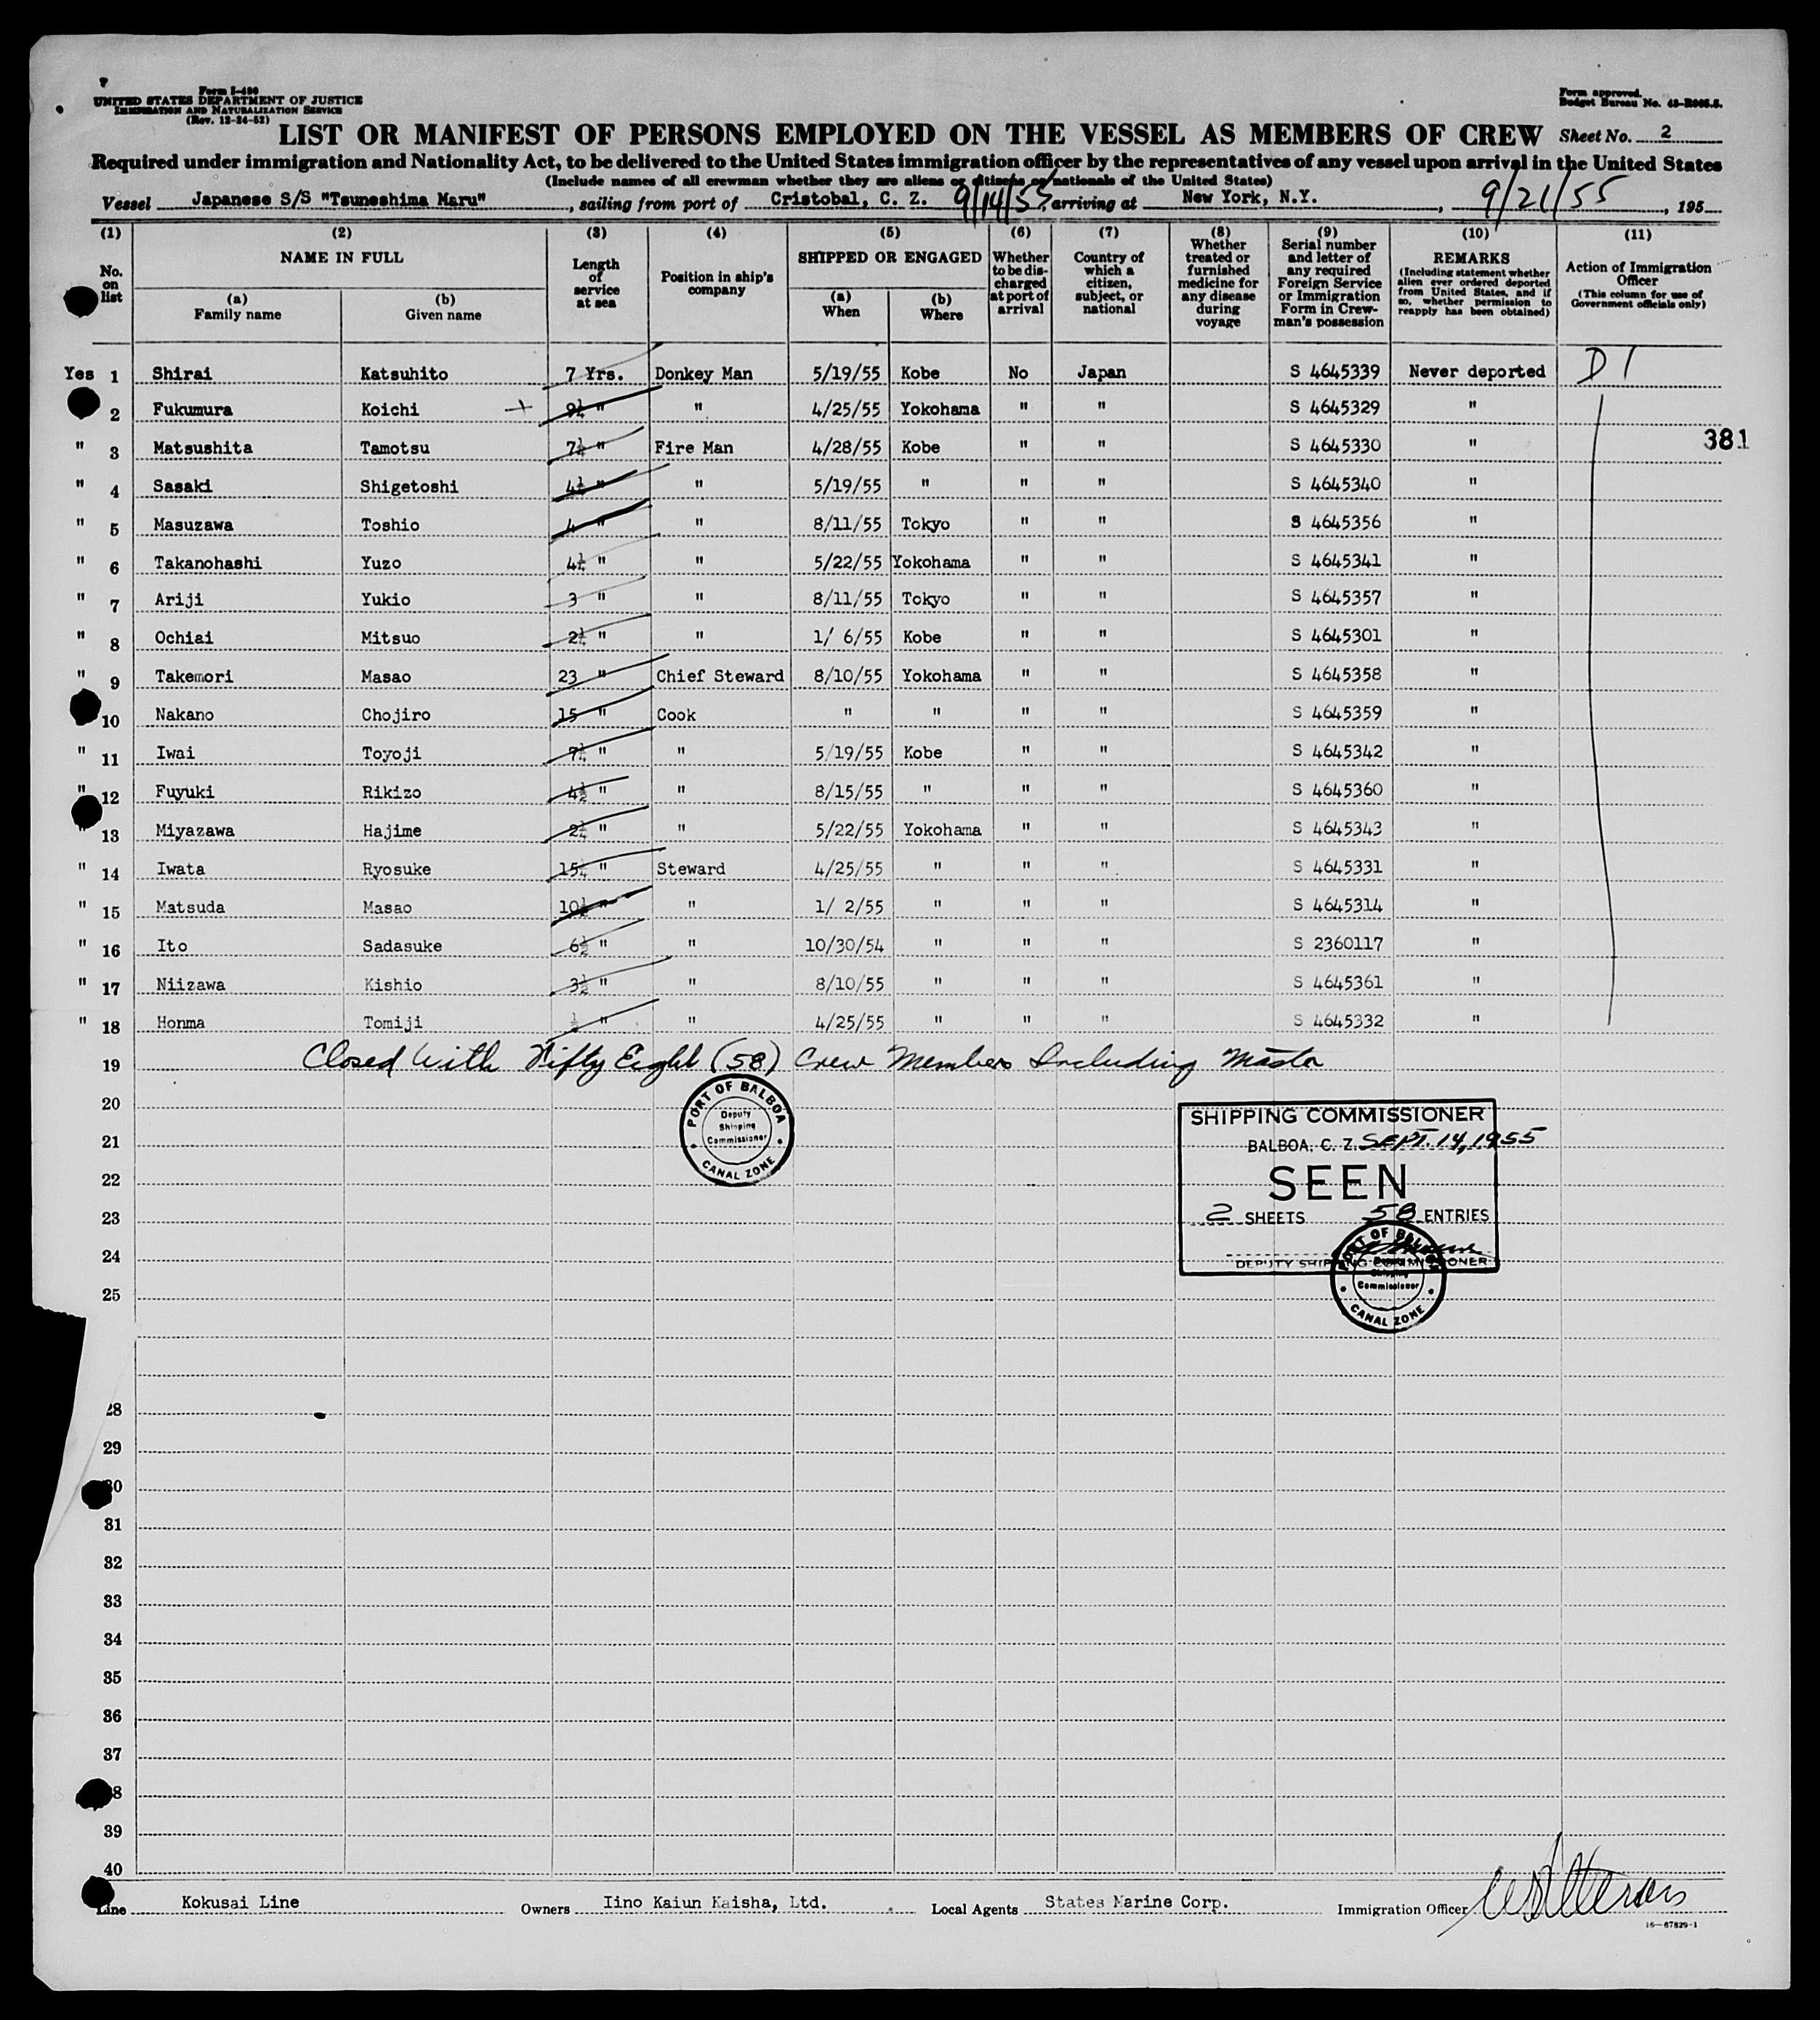 Form I-480
UNITED STATES DEPARTMENT OF JUSTICE
IMMIGRATION AND NATURALIZATION SERVICE
(Rev. 12-24-52)
Form approved.
Budget Bureau No. 43-R065.5.
LIST OR MANIFEST OF PERSONS EMPLOYED ON THE VESSEL AS MEMBERS OF CREW Sheet No. 2
Required under immigration and Nationality Act, to be delivered to the United States immigration officer by the representatives of any vessel upon arrival in the United States
(Include names of all crewman whether they are aliens or citizens or nationals of the United States)
Vessel Japanese S/S "Tsuneshima Maru", sailing from port of Cristobal, C. Z. 9/14/55, arriving at New York, N.Y., 9/21/55, 195
(1) (2) (3) (4) (5) (6) (7) (8) (9) (10) (11)
No. on list
NAME IN FULL
(a) Family name
(b) Given name
Length of service at sea
Position in ship's company
SHIPPED OR ENGAGED
(a) When
(b) Where
Whether to be discharged at port of arrival
Country of which a citizen, subject, or national
Whether treated or furnished medicine for any disease during voyage
Serial number and letter of any required Foreign Service or Immigration Form in Crewman's possession
REMARKS
(Including statement whether alien ever ordered deported from United States, and if so, whether permission to reapply has been obtained)
Action of Immigration Officer
(This column for use of Government officials only)
Yes 1 Shirai Katsuhito 7 Yrs. Donkey Man 5/19/55 Kobe No Japan S 4645339 Never deported D 1
2 Fukumura Koichi + 9¼ " " 4/25/55 Yokohama " " S 4645329 "
" 3 Matsushita Tamotsu 7½ " Fire Man 4/28/55 Kobe " " S 4645330 " 381
" 4 Sasaki Shigetoshi 4½ " " 5/19/55 " " " S 4645340 "
" 5 Masuzawa Toshio 4 " " 8/11/55 Tokyo " " S 4645356 "
" 6 Takanohashi Yuzo 4¼ " " 5/22/55 Yokohama " " S 4645341 "
" 7 Ariji Yukio 3 " " 8/11/55 Tokyo " " S 4645357 "
" 8 Ochiai Mitsuo 2¼ " " 1/ 6/55 Kobe " " S 4645301 "
" 9 Takemori Masao 23 " Chief Steward 8/10/55 Yokohama " " S 4645358 "
10 Nakano Chojiro 15 " Cook " " " " S 4645359 "
" 11 Iwai Toyoji 7¼ " " 5/19/55 Kobe " " S 4645342 "
" 12 Fuyuki Rikizo 4½ " " 8/15/55 " " " S 4645360 "
" 13 Miyazawa Hajime 2¼ " " 5/22/55 Yokohama " " S 4645343 "
" 14 Iwata Ryosuke 15¼ " Steward 4/25/55 " " " S 4645331 "
" 15 Matsuda Masao 10½ " " 1/ 2/55 " " " S 4645314 "
" 16 Ito Sadasuke 6½ " " 10/30/54 " " " S 2360117 "
" 17 Niizawa Kishio 3½ " " 8/10/55 " " " S 4645361 "
" 18 Honma Tomiji " " 4/25/55 " " " S 4645332 "
19 Closed With Fifty Eight (58) Crew Members Including Master
20
PORT OF BALBOA
Deputy Shipping Commissioner
CANAL ZONE
SHIPPING COMMISSIONER
21
BALBOA, C. Z. SEPT. 14, 1955
22
SEEN
23
2 SHEETS 58 ENTRIES
24
DEPUTY SHIPPING COMMISSIONER
PORT OF BALBOA
Deputy Shipping Commissioner
CANAL ZONE
25
28
29
30
31
32
33
34
35
36
37
38
39
40
Line Kokusai Line Owners Iino Kaiun Kaisha, Ltd. Local Agents States Marine Corp. Immigration Officer
16—67829-1